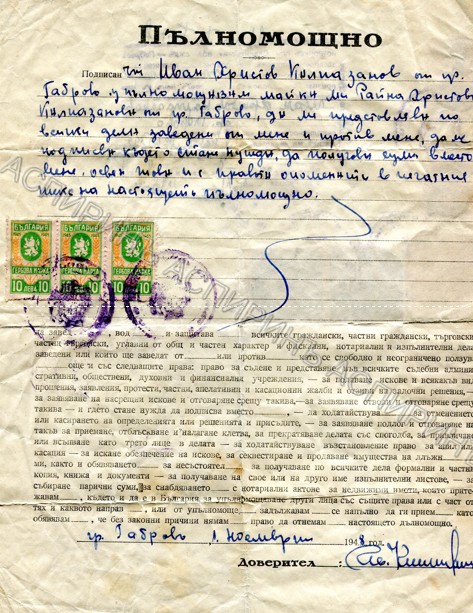 Пълномощно
Подписан Иван Христов Килпазанов от гр.
Габрово упълномощавам майка ми Райна Христова
Килпазанова от гр. Габрово, да ме представлява по
всички дела заведени от мене и против мене, да се
подписва където стане нужда, да получава суми вместо
мене, освен това и с правата споменати в печатния
текст на настоящето пълномощно.
БЪЛГАРИЯ БЪЛГАРИЯ БЪЛГАРИЯ
ГЕРБОВА МАРКА ГЕРБОВА МАРКА ГЕРБОВА МАРКА
10 ЛЕВА 10 10 ЛЕВА 10 10 ЛЕВА 10
АСПИРИНЪ АСПИРИНЪ АСПИРИНЪ
да завед вод и защитава всичките граждански, частни граждански, търговски
частни търговски, углавни от общ и частен характер нотариални и изпълнителни дела
заведени или които ще заведат от или против със свободно и неограничено полzу
още и със следващите права: право да съдене и представление във всичките съдебни админи
стративни, обществени, духовни и финансиални учреждения, за подаване на искове и всякакви
прошения, заявления, протести, частни, апелативни и касационни жалби и
за заявяване на насрещни искове и отговаряне срещу такива, за заявяване
такива и гдето стане нужда да подписва вместо да ходатайства
или касирането на определенията или решенията и присъдите, за заявяване подлог и отговаряне на
такъв за приемане, отблъсване и налагане клетва, за прекратяване делата със спогодба,
или встъпване като трето лице в делата за ходатайствуване възстановление право за
касация за искане обезпечение на искове, за секвестиране и продаване имущества на длъжни
ми, както и обявяването за несъстоятел за получаване по всичките дела формални и частни
копия, книжа и документи за получаване на свое или на друго име изпълнителни листове, за
събиране парични суми, за снабдяването с нотариални актове за недвижими имоти, които притe
жавам, където и да е в България за упълномощаване други лица със същите права или с част от
тях и каквото направ или от упълномощ задължавам се напълно да ги прием като
обявявам, че без законни причини нямам право да отменям настоящето пълномощно.
гр. Габрово 1. Ноември 1948 год.
Доверител: